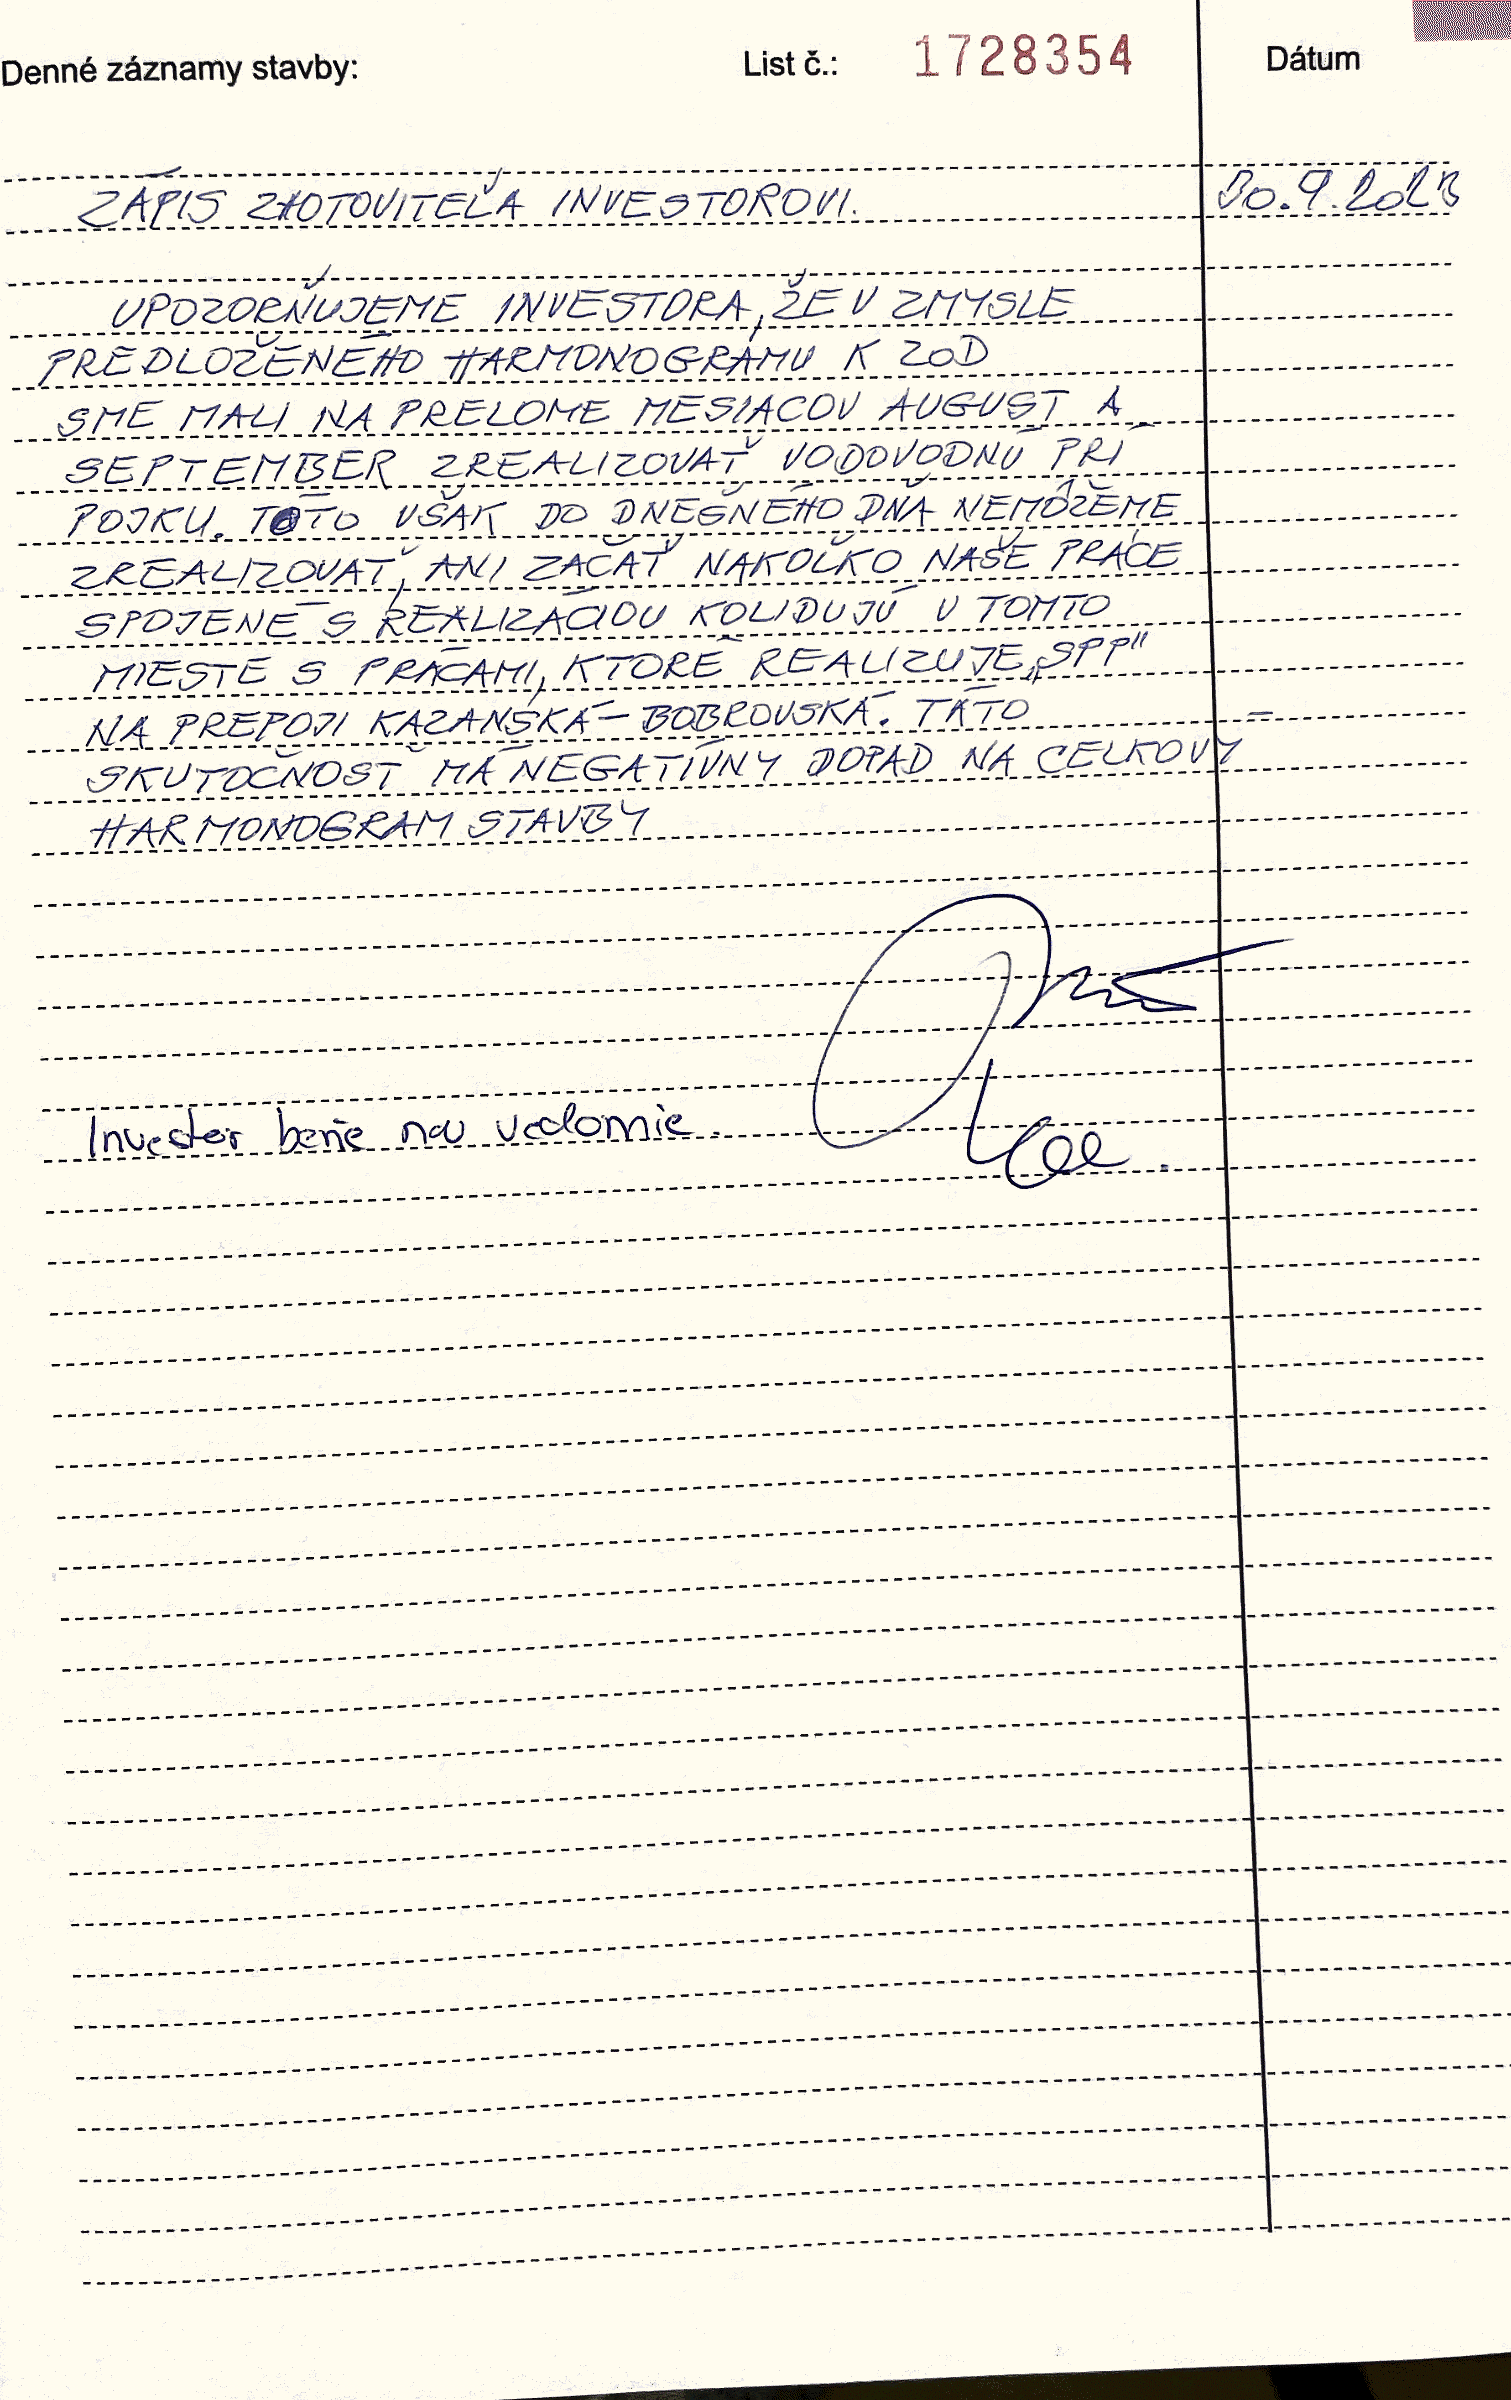 Denné záznamy stavby: List č.: 1728354 Dátum
ZÁPIS ZHOTOVITEĽA INVESTOROVI. 30.9.2023
UPOZORŇUJEME INVESTORA, ŽE V ZMYSLE
PREDLOŽENÉHO HARMONOGRAMU K ZOD
SME MALI NA PRELOME MESIACOV AUGUST A
SEPTEMBER ZREALIZOVAŤ VODOVODNÚ PRÍ
POJKU. TOTO VŠAK DO DNEŠNÉHO DŇA NEMÔŽEME
ZREALIZOVAŤ, ANI ZAČAŤ NAKOĽKO NAŠE PRÁCE
SPOJENÉ S REALIZÁCIOU KOLIDUJÚ V TOMTO
MIESTE S PRÁCAMI, KTORÉ REALIZUJE „SPP"
NA PREPOJI KAZANSKÁ - BOBROVSKÁ. TÁTO
SKUTOČNOSŤ MÁ NEGATÍVNY DOPAD NA CELKOVÝ
HARMONOGRAM STAVBY
Investor berie na vedomie.